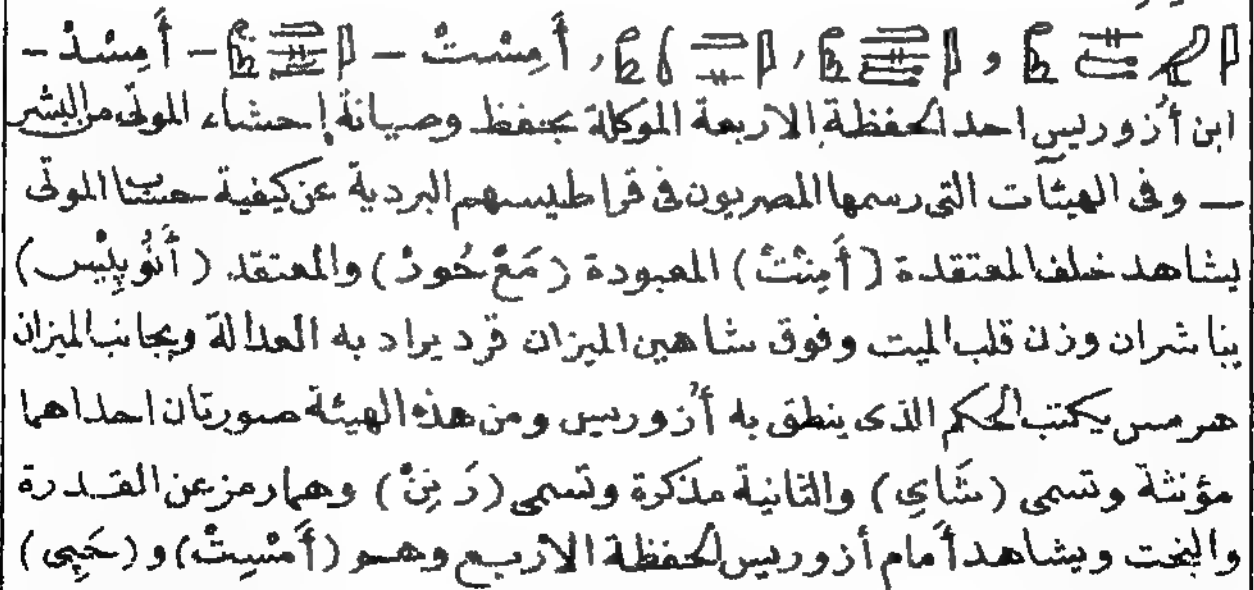 و , أَمِسْتْ – – أَمِسْدْ –
ابن أُزوريس احد الحفظة الاربعة الموكلة بحفظ وصيانة إحشاء الموتى من البشر
— وفى الهيئآت التى رسمها المصريون فى قراطيسهم البردية عن كيفية حساب الموتى
يشاهد خلف المعتقدة (أَمِنْتْ) المعبودة (مَعْ حُورْ) والمعتقد (أَنُوبِيْس)
يباشران وزن قلب الميت وفوق شاهين الميزان قرد يراد به العدالة وبجانب الميزان
هرمس يكتب الحكم الذى ينطق به أُزوريس ومن هذه الهيئة صورتان احداهما
مؤنثة وتسمى (شَاىِ) والثانية مذكرة وتسمى (رَنِنْ) وهما رمز عن القدرة
والبخت ويشاهد أمام أزوريس الحفظة الاربع وهو (أَمْسِيتْ) و (حَپِى)